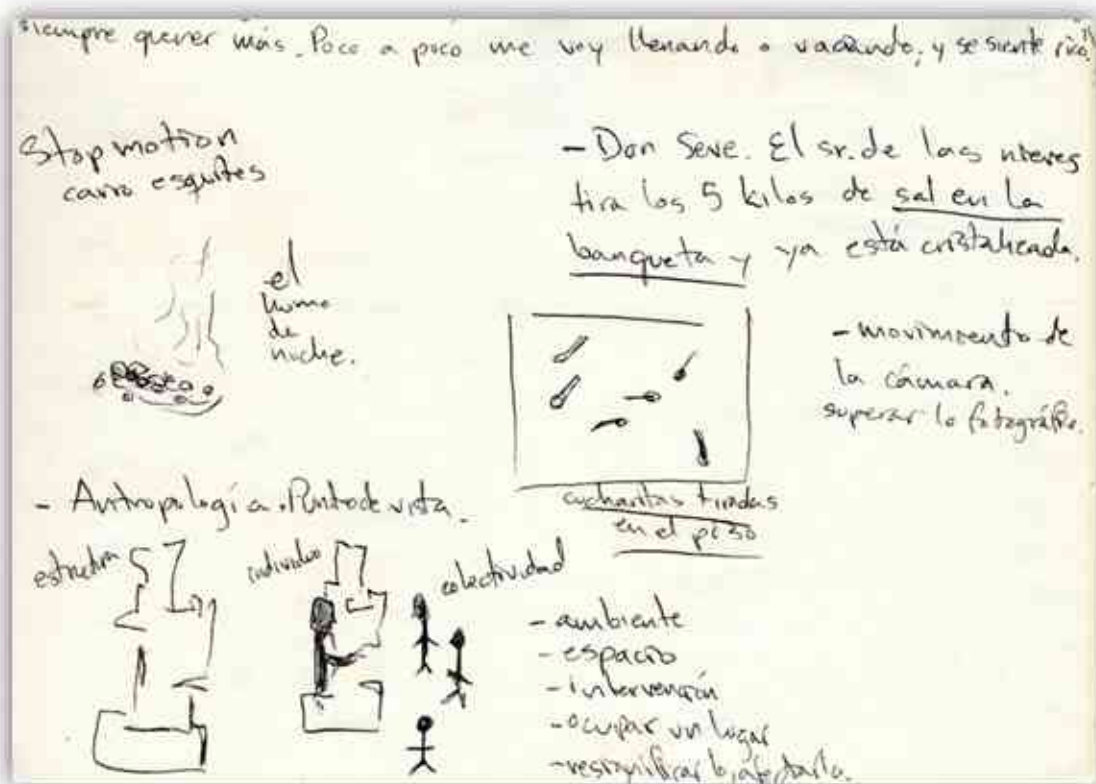 siempre querer más. Poco a poco me voy llenando o vaciando, y se siente rico.
Stop motion
carro esquites
el
humo
de
noche.
- Don Seve. El sr. de las nieves
tira los 5 kilos de sal en la
banqueta y ya está cristalizada.
- movimiento de
la cámara.
superar lo fotográfico.
cucharitas tiradas
en el piso
- Antropología. Punto de vista.
estructura
individuo
colectividad
- ambiente
- espacio
- intervención
- ocupar un lugar
- resignificarlo, afectarlo.